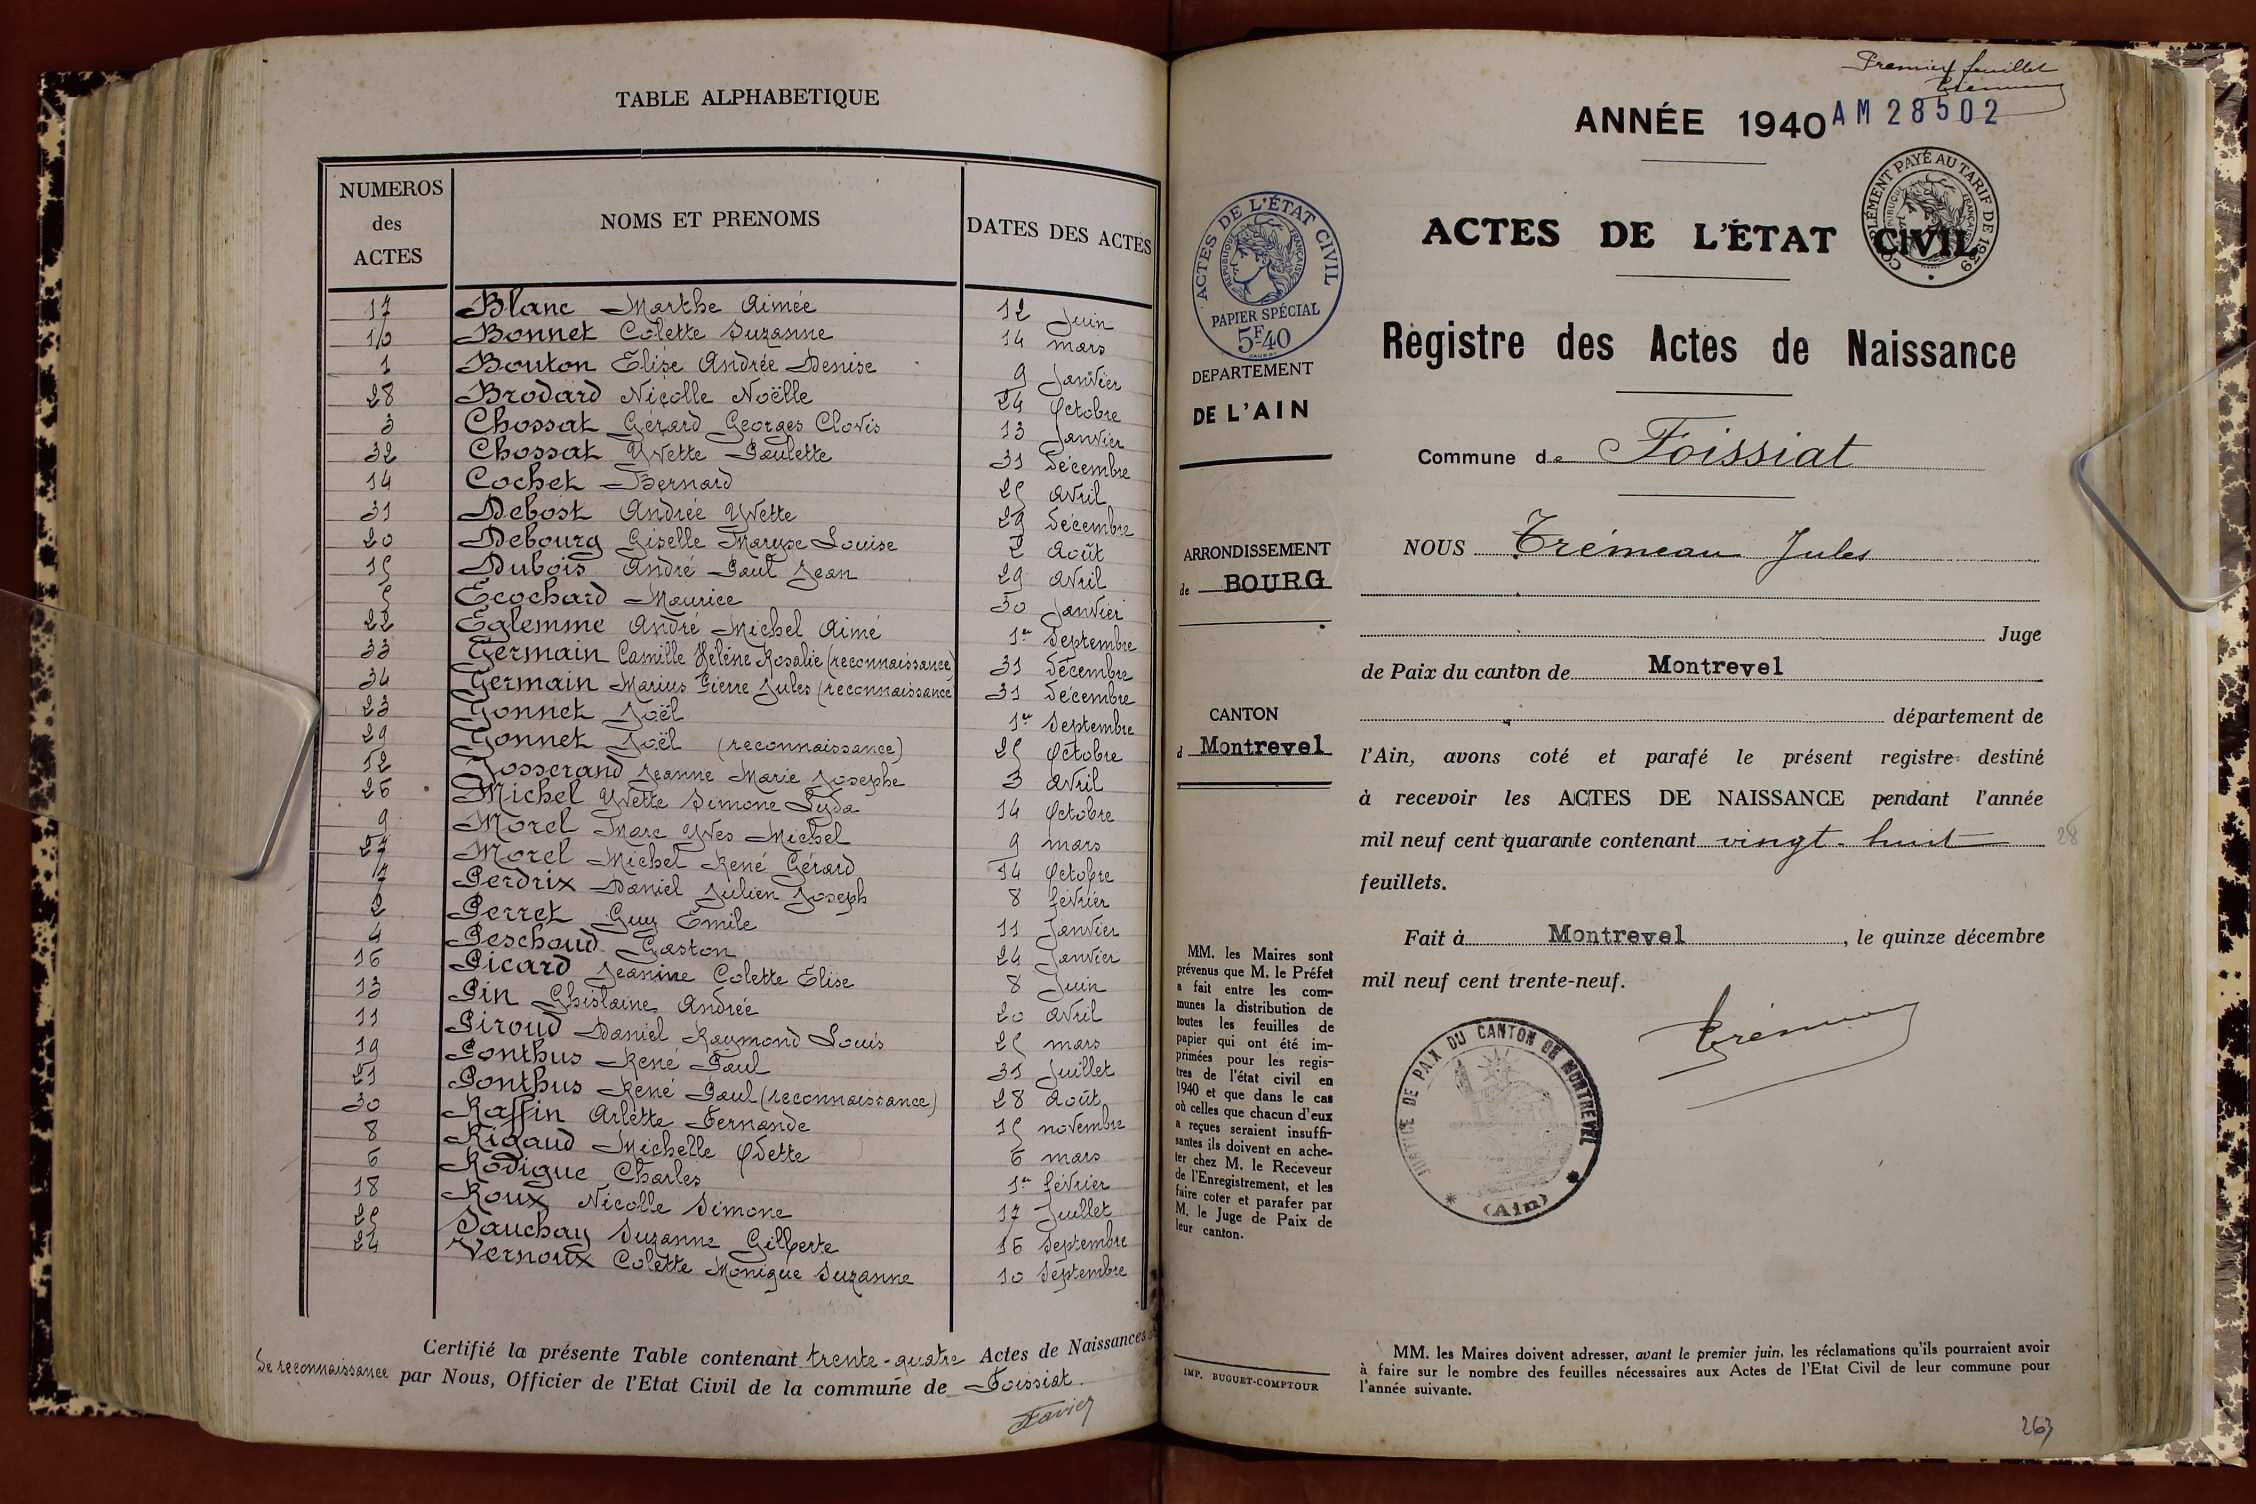 TABLE ALPHABETIQUE
NUMEROS des ACTES | NOMS ET PRENOMS | DATES DES ACTES
17 Blanc Marthe Aimée 12 Juin
10 Bonnet Colette Suzanne 14 mars
1 Bouton Elise Andrée Denise 9 Janvier
28 Brodard Nicolle Noëlle 24 Octobre
3 Chossat Gérard Georges Clovis 13 Janvier
32 Chossat Yvette Paulette 31 Décembre
14 Cochet Bernard 25 Avril
31 Debost Andrée Yvette 29 Décembre
20 Debourg Giselle Maryse Louise 2 Août
15 Dubois André Paul Jean 29 Avril
5 Ecochard Maurice 30 Janvier
22 Eglemme André Michel Aimé 1er Septembre
33 Germain Camille Hélène Rosalie (reconnaissance) 31 Décembre
34 Germain Marius Pierre Jules (reconnaissance) 31 Décembre
23 Gonnet Joël 1er Septembre
29 Gonnet Joël (reconnaissance) 25 Octobre
12 Josserand Jeanne Marie Josephe 3 Avril
26 Michel Yvette Simone Lyda 14 Octobre
9 Morel Marc Yves Michel 9 mars
27 Morel Michel René Gérard 14 Octobre
7 Perdrix Daniel Julien Joseph 8 février
2 Perret Guy Emile 11 Janvier
4 Peschoud Gaston 24 Janvier
16 Picard Jeanine Colette Elise 8 Juin
13 Pin Ghislaine Andrée 20 Avril
11 Piroud Daniel Raymond Louis 25 mars
19 Ponthus René Paul 31 Juillet
21 Ponthus René Paul (reconnaissance) 28 Août
30 Raffin Arlette Fernande 15 novembre
8 Rigaud Michelle Odette 6 mars
6 Rodigue Charles 1er février
18 Roux Nicolle Simone 17 Juillet
25 Sauchay Suzanne Gilberte 16 Septembre
24 Vernoux Colette Monique Suzanne 10 Septembre
Certifié la présente Table contenant trente-quatre Actes de Naissances
de reconnaissance par Nous, Officier de l'Etat Civil de la commune de Foissiat.
Favier
Premier feuillet
ANNÉE 1940 AM 28502
COMPLÉMENT PAYÉ AU TARIF DE 1939
RÉPUBLIQUE FRANÇAISE
ACTES DE L'ÉTAT CIVIL
Registre des Actes de Naissance
Commune de Foissiat
NOUS Trémeau Jules
Juge
de Paix du canton de Montrevel
département de
l'Ain, avons coté et parafé le présent registre destiné
à recevoir les ACTES DE NAISSANCE pendant l'année
mil neuf cent quarante contenant vingt-huit 28
feuillets.
Fait à Montrevel, le quinze décembre
mil neuf cent trente-neuf.
JUSTICE DE PAIX DU CANTON DE MONTREVEL
* (Ain) *
MM. les Maires doivent adresser, avant le premier juin, les réclamations qu'ils pourraient avoir
à faire sur le nombre des feuilles nécessaires aux Actes de l'Etat Civil de leur commune pour
l'année suivante.
263
ACTES DE L'ÉTAT CIVIL
RÉPUBLIQUE FRANÇAISE
PAPIER SPÉCIAL
5F40
DEPARTEMENT
DE L'AIN
ARRONDISSEMENT
de BOURG
CANTON
d Montrevel
MM. les Maires sont
prévenus que M. le Préfet
a fait entre les com-
munes la distribution de
toutes les feuilles de
papier qui ont été im-
primées pour les regis-
tres de l'état civil en
1940 et que dans le cas
où celles que chacun d'eux
a reçues seraient insuffi-
santes ils doivent en ache-
ter chez M. le Receveur
de l'Enregistrement, et les
faire coter et parafer par
M. le Juge de Paix de
leur canton.
IMP. BUGUET-COMPTOUR